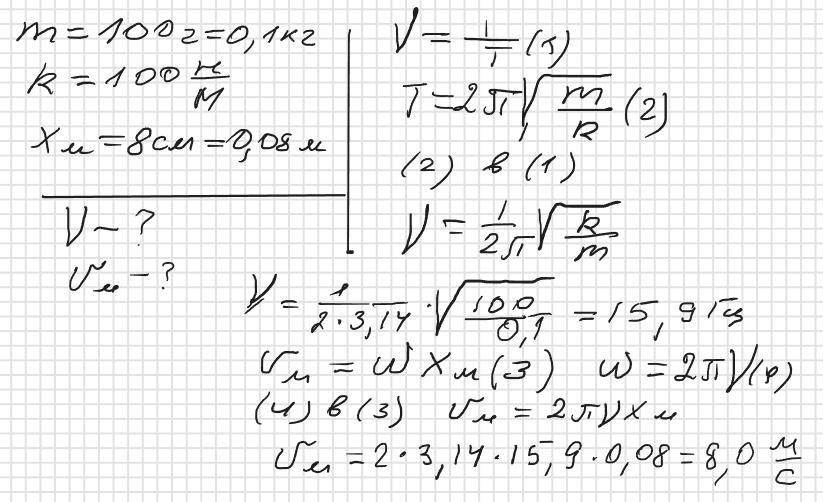 m = 100 г = 0,1 кг
k = 100 н/м
xм = 8 см = 0,08 м
ν - ?
υм - ?
ν = 1/T (1)
T = 2π√(m/k) (2)
(2) в (1)
ν = 1/2π √(k/m)
ν = 1/(2·3,14) · √(100/0,1) = 15,9 Гц
υм = ω xм (3) ω = 2πν (4)
(4) в (3) υм = 2πν xм
υм = 2·3,14·15,9·0,08 = 8,0 м/с